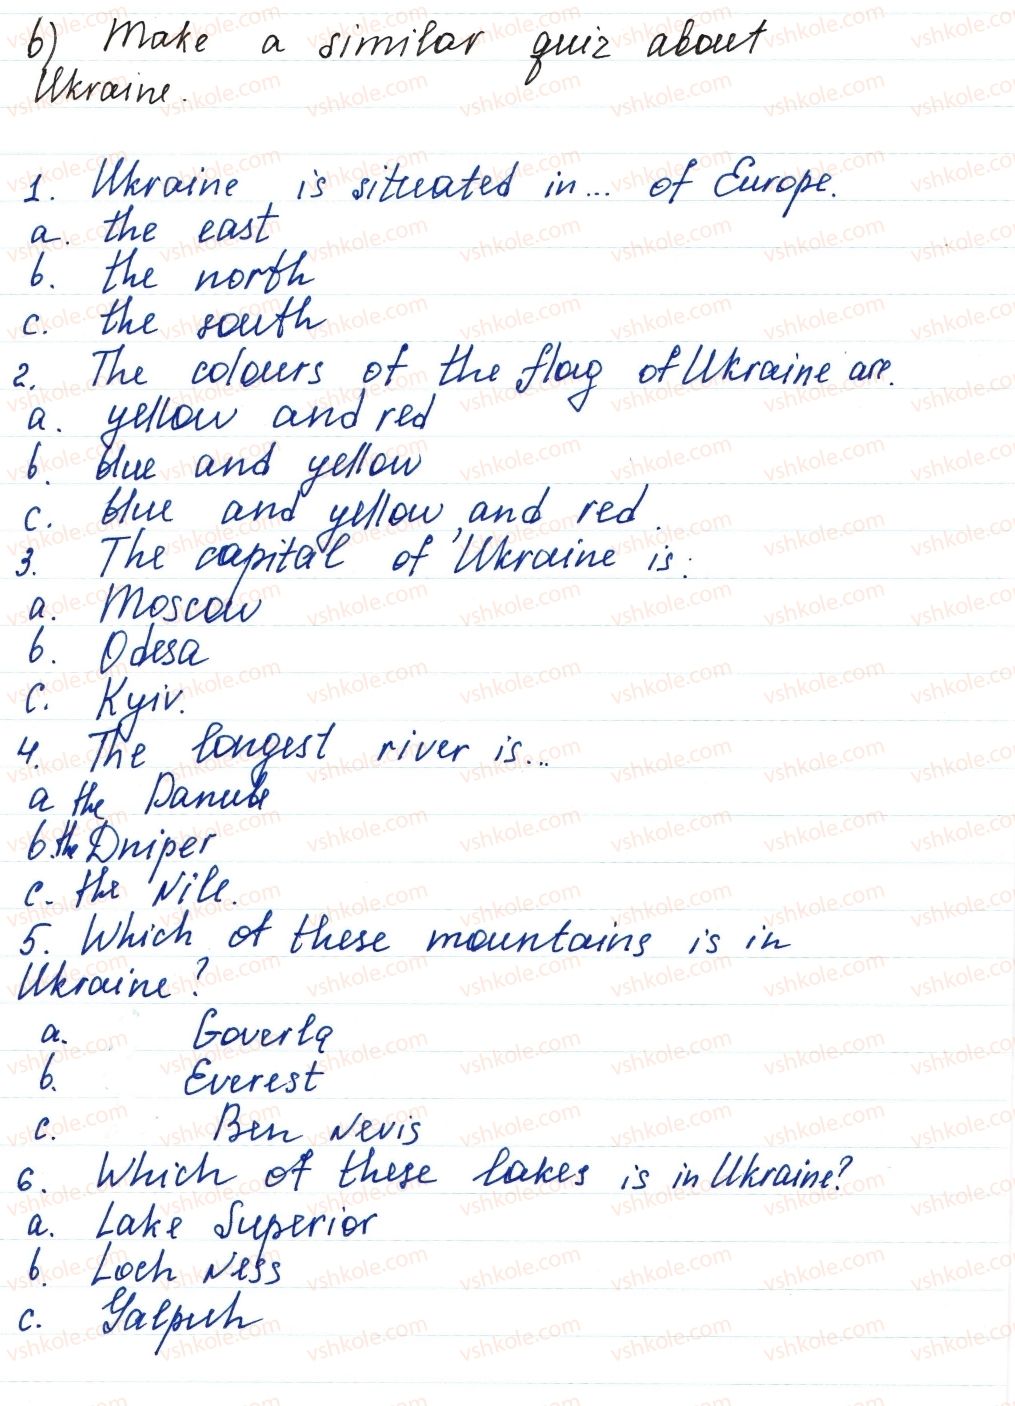 b) Make a similar quiz about
Ukraine.
1. Ukraine is situated in... of Europe.
a. the east
b. the north
c. the south
2. The colours of the flag of Ukraine are.
a. yellow and red
b. blue and yellow
c. blue and yellow, and red.
3. The capital of Ukraine is:
a. Moscow
b. Odesa
c. Kyiv.
4. The longest river is...
a the Danube
b. the Dniper
c. the Nile.
5. Which of these mountains is in
Ukraine?
a. Goverla
b. Everest
c. Ben Nevis
6. Which of these lakes is in Ukraine?
a. Lake Superior
b. Loch Ness
c. Yalpuh